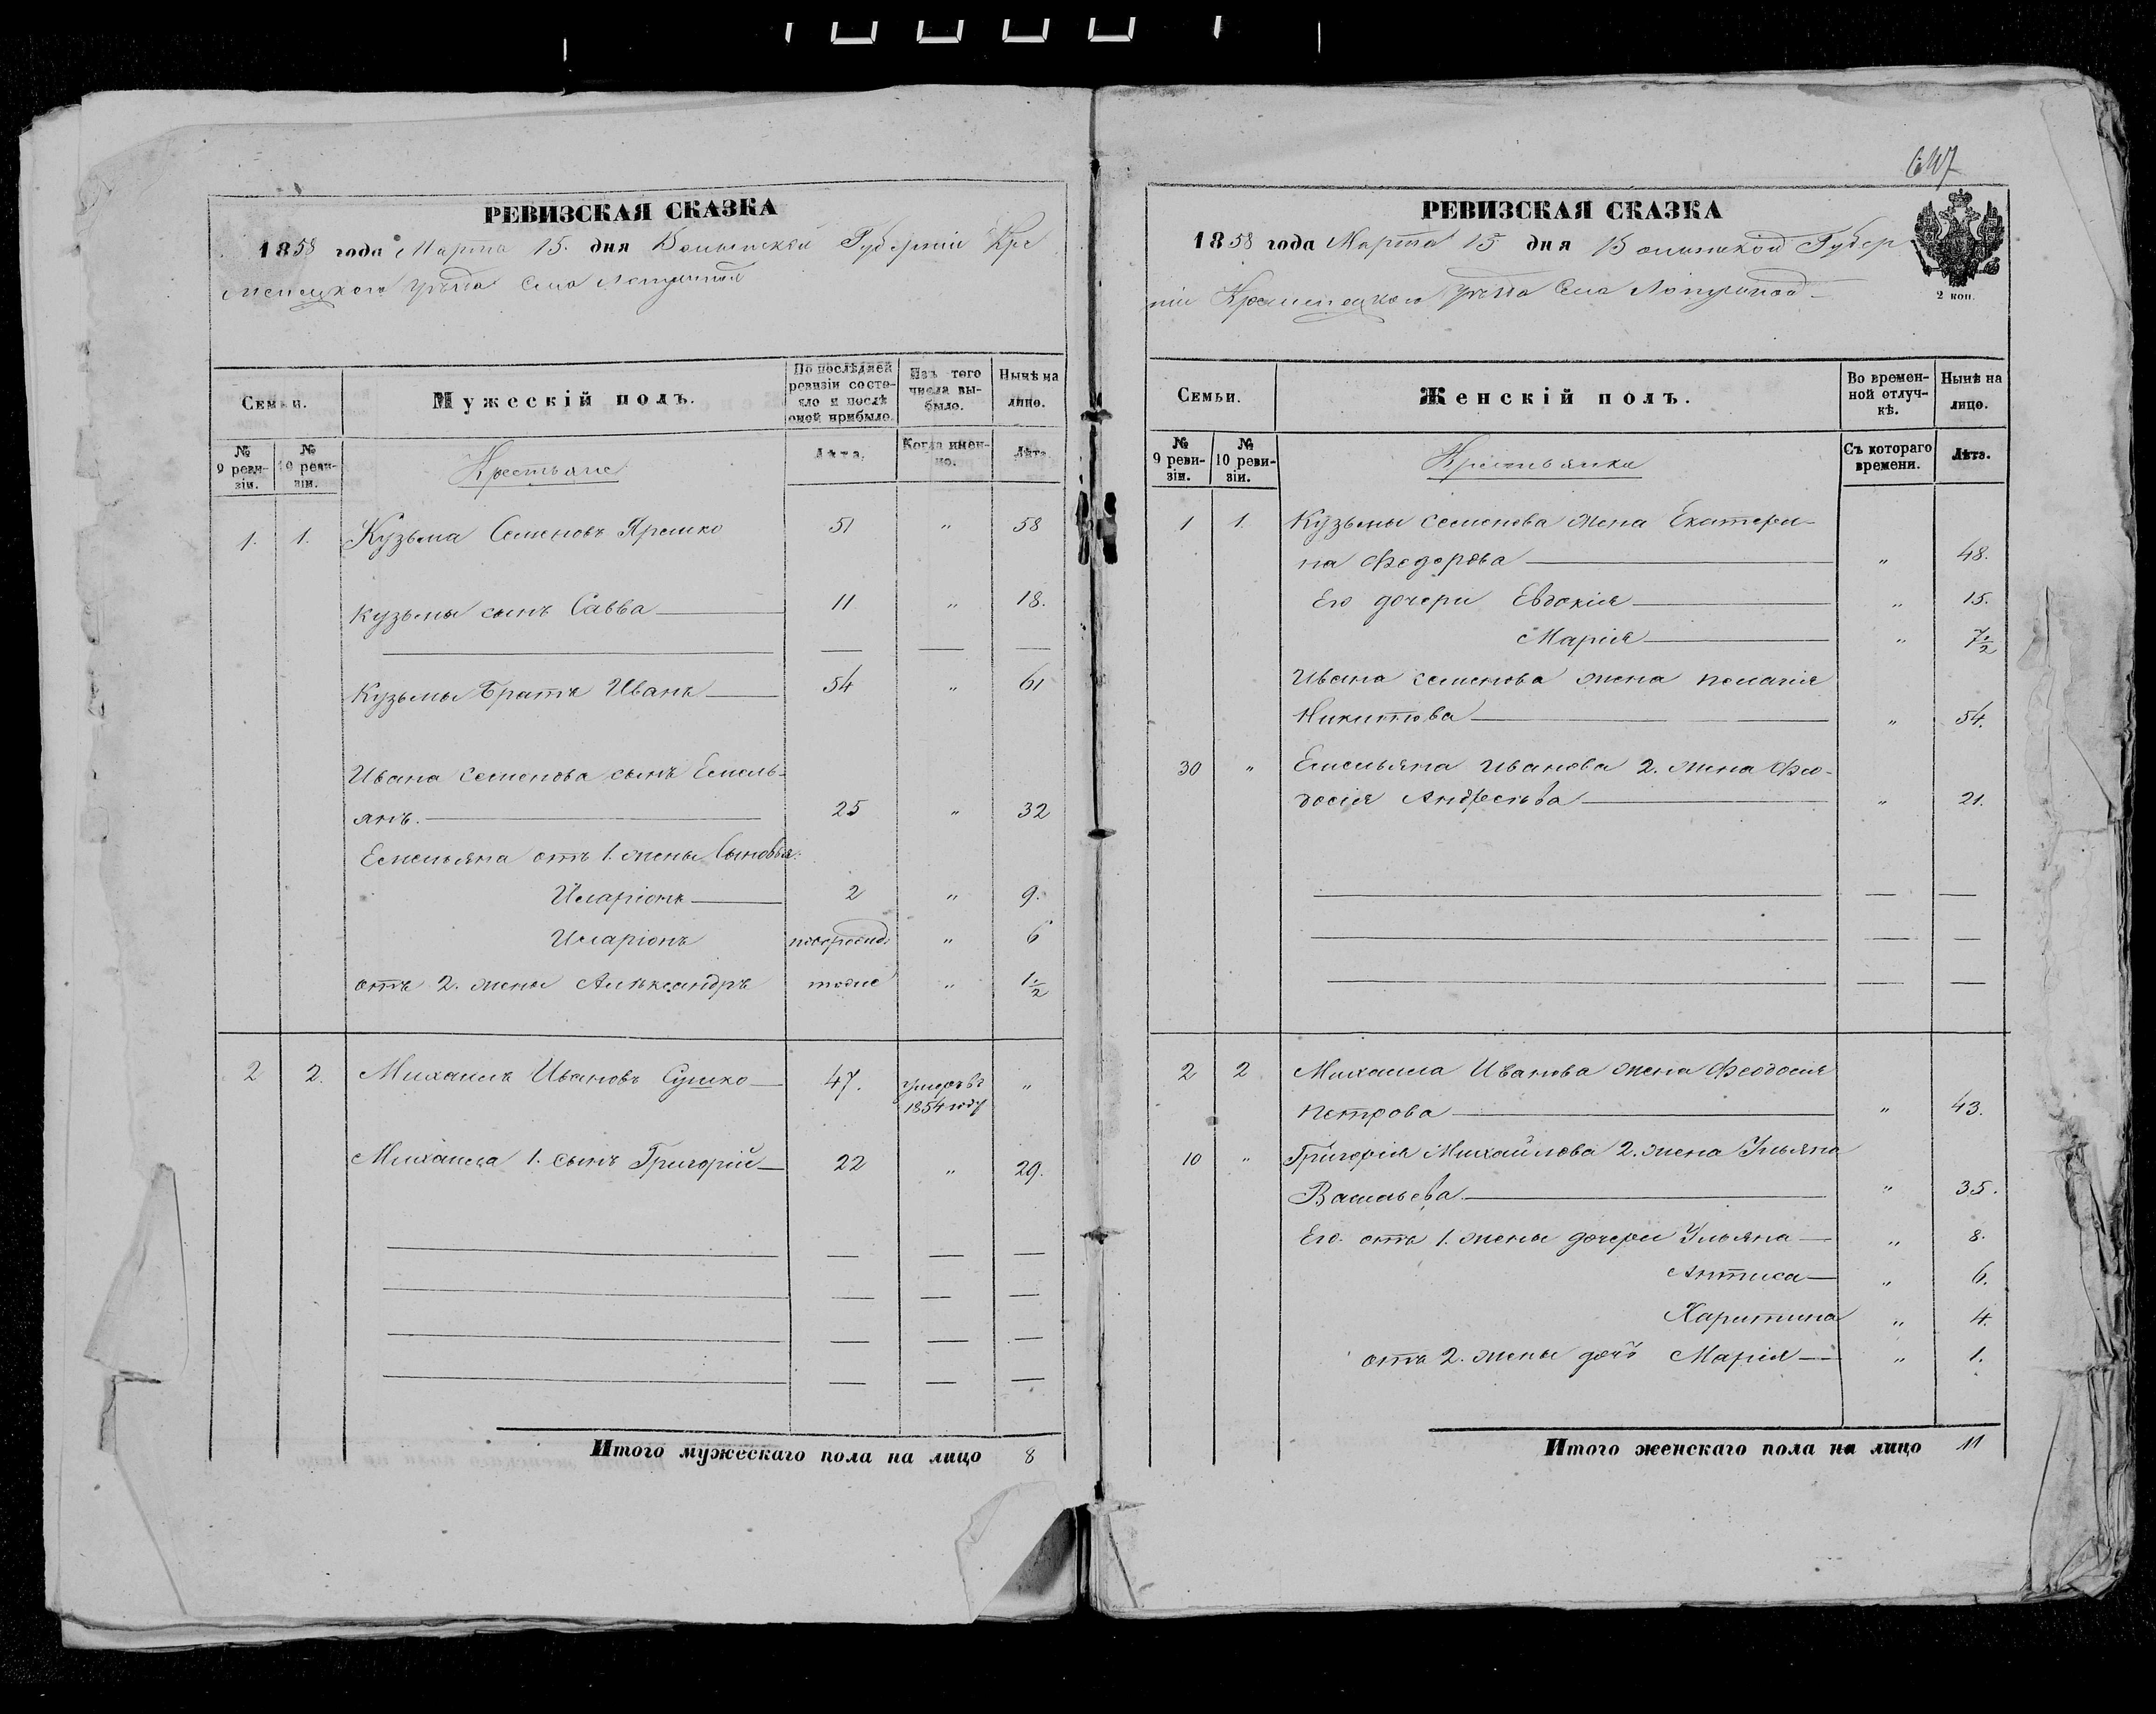 647
РЕВИЗСКАЯ СКАЗКА
1858 года Марта 15. дня Волынской Губерніи Кре
менецкого уѣзда Села
Семьи.
Мужескій полъ.
По послѣдней ревизіи состояло и послѣ оной прибыло.
Изъ того числа выбыло.
Нынѣ на лицо.
№ 9 ревизіи.
№ 10 ревизіи.
Крестьяне
Лѣта.
Когда именно.
Лѣта.
1. 1. Кузьма Семеновъ Яремко 51 " 58
Кузьмы сынъ Савва 11 " 18.
Кузьмы Братъ Иванъ 54 " 61
Ивана Семенова сынъ Емель-
янъ. 25 " 32
Емельяна отъ 1. жены Сыновья:
Иларіонъ 2 " 9.
Иларіонъ " 6
отъ 2. жены Александръ тоже " 1 1/2
2 2. Михаилъ Ивановъ Сушко 47. умеръ въ "
1854 году
Михаила 1. сынъ Григорій 22 " 29.
Итого мужескаго пола на лицо 8
РЕВИЗСКАЯ СКАЗКА
1858 года Марта 15 дня Волынской Губер
ніи Кременецкого уѣзда Села
2 коп.
Семьи.
Женскій полъ.
Во временной отлучкѣ.
Нынѣ на лицо.
№ 9 ревизіи.
№ 10 ревизіи.
Крестьянки
Съ котораго времени.
Лѣта.
1 1. Кузьмы Семенова жена Екатери-
на Федорова " 48.
Его дочери Евдокія " 15.
Марія " 7 1/2
Ивана Семенова жена Пелагія
Никитова " 54.
30 " Емельяна Иванова 2. жена Фео-
досія Андреева " 21.
2 2 Михаила Иванова жена Феодосія
Петрова " 43.
10 " Григорія Михайлова 2. жена Ульяна
Васильева " 35.
Его отъ 1. жены дочери Ульяна " 8.
" 6.
Харитина " 4.
отъ 2. жены дочь Марія " 1.
Итого женскаго пола на лицо 11